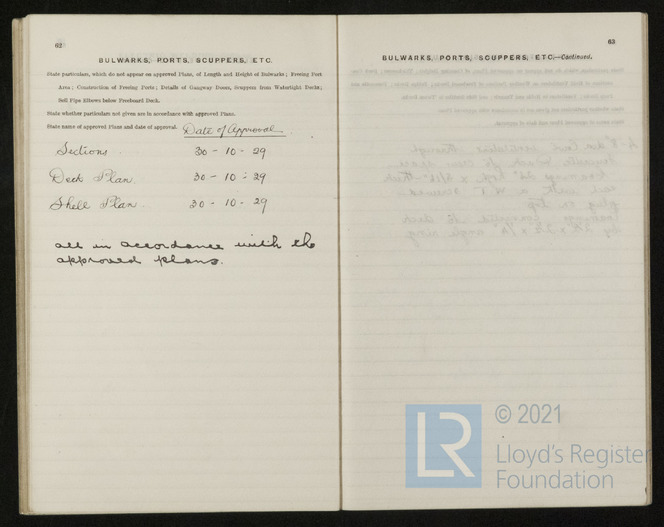 62
BULWARKS, PORTS, SCUPPERS, ETC.
State particulars, which do not appear on approved Plans, of Length and Height of Bulwarks; Freeing Port
Area; Construction of Freeing Ports; Details of Gangway Doors, Scuppers from Watertight Decks;
Soil Pipe Elbows below Freeboard Deck.
State whether particulars not given are in accordance with approved Plans.
State name of approved Plans and date of approval. Date of Approval
Sections. 30 - 10 - 29
Deck Plan. 30 - 10 - 29
Shell Plan. 30 - 10 - 29
all in accordance with the
approved plans.
63
BULWARKS, PORTS, SCUPPERS, ETC.—Continued.
LR
© 2021
Lloyd's Register
Foundation